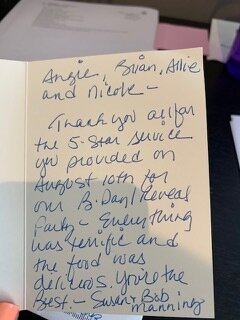 Angie, Brian, Allie
and Nicole -
Thank you all for
the 5-Star service
you provided on
August 10th for
our B.Day/Reveal
Party - Everything
was terrific and
the food was
delicious. You're the
Best. - Susan & Bob
Manning